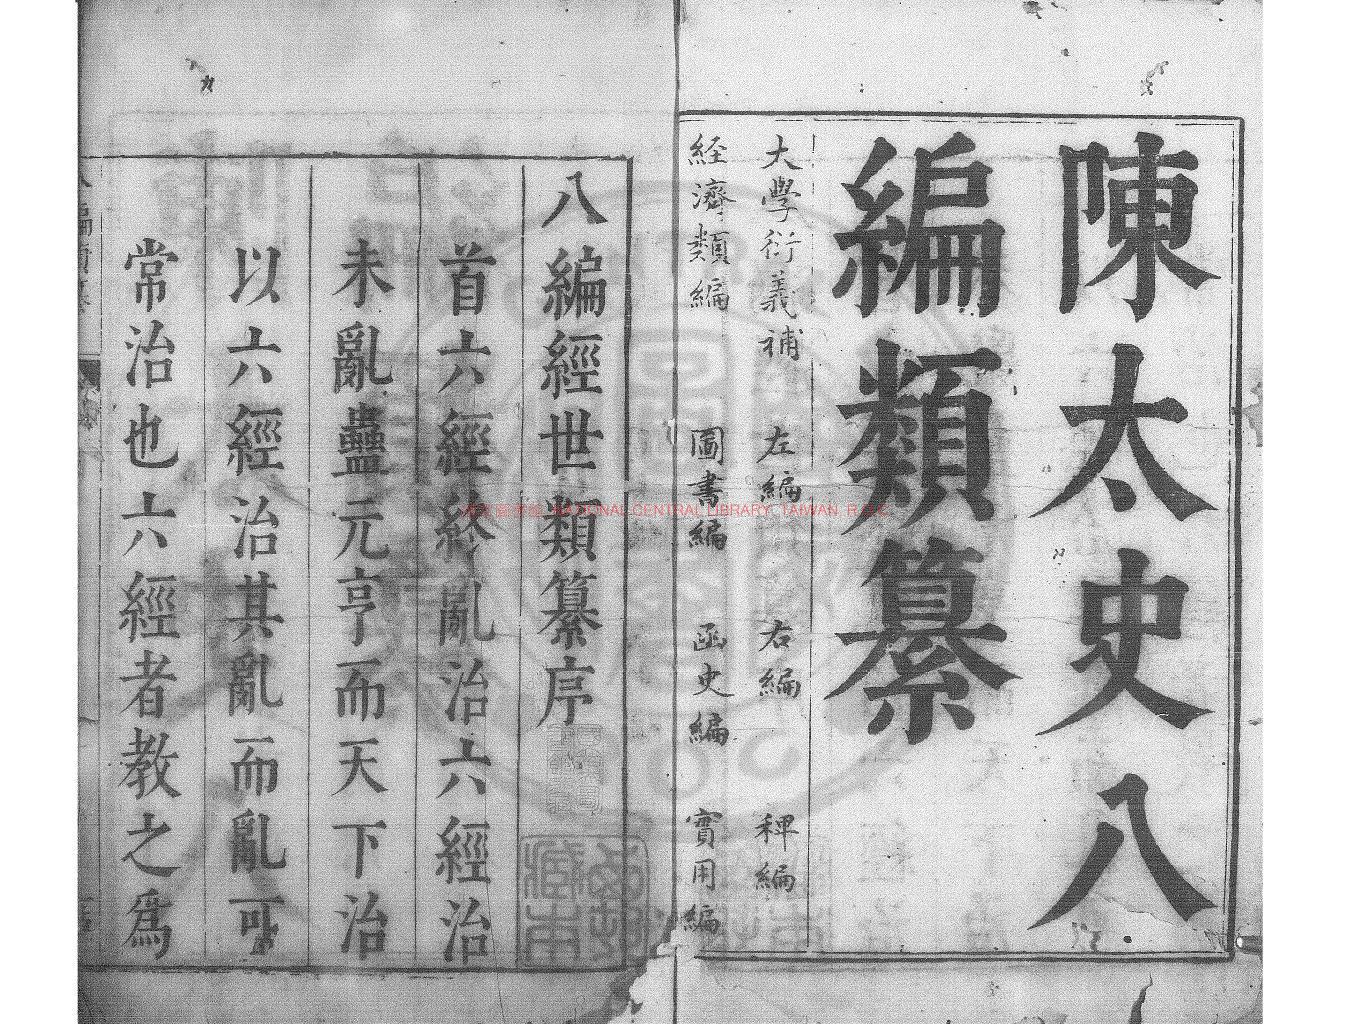 陳太史八
編類纂
大學衍義補 左編 右編 稗編
経濟類編 圖書編 函史編 實用編
八編經世類纂序
首六經終亂治六經治
未亂蠱元亨而天下治
以六經治其亂而亂可
常治也六經者教之爲
NATIONAL CENTRAL LIBRARY, TAIWAN, R.O.C